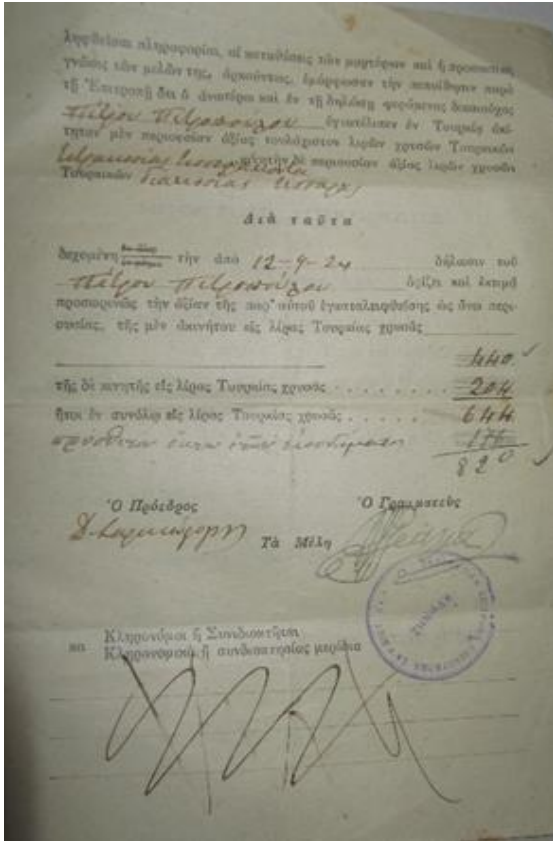 ληφθεῖσαι πληροφορίαι, αἱ καταθέσεις τῶν μαρτύρων καὶ ἡ προσωπικὴ
γνῶσις τῶν μελῶν της, ἀρκούντως, ἐμόρφωσαν τὴν πεποίθησιν παρὰ
τῇ Ἐπιτροπῇ ὅτι ὁ ἀνωτέρω καὶ ἐν τῇ δηλώσει φερόμενος δικαιοῦχος
Πέτρου Πετροπούλου ἐγκατέλιπεν ἐν Τουρκίᾳ ἀκί-
νητον μὲν περιουσίαν ἀξίας τουλάχιστον λιρῶν χρυσῶν Τουρκικῶν
τετρακοσίας τεσσαράκοντα κινητὴν δὲ περιουσίαν ἀξίας λιρῶν χρυσῶν
Τουρκικῶν διακοσίας τέσσαρας
Διὰ ταῦτα
δεχομένη τὴν ἀπὸ 12-9-24 δήλωσιν τοῦ
Πέτρου Πετροπούλου ὁρίζει καὶ ἐκτιμᾷ
προσωρινῶς τὴν ἀξίαν τῆς παρ' αὐτοῦ ἐγκαταλειφθείσης ὡς ἄνω περι-
ουσίας, τῆς μὲν ἀκινήτου εἰς λίρας Τουρκίας χρυσᾶς
440
τῆς δὲ κινητῆς εἰς λίρας Τουρκίας χρυσᾶς . . . . . . . 204
ἤτοι ἐν συνόλῳ εἰς λίρας Τουρκίας χρυσᾶς . . . . . 644
176
820
Ὁ Πρόεδρος Ὁ Γραμματεὺς
Τὰ Μέλη
Κληρονόμοι ἢ Συνιδιοκτῆται
Κληρονομικαὶ ἢ συνιδιοκτησίας μερίδια